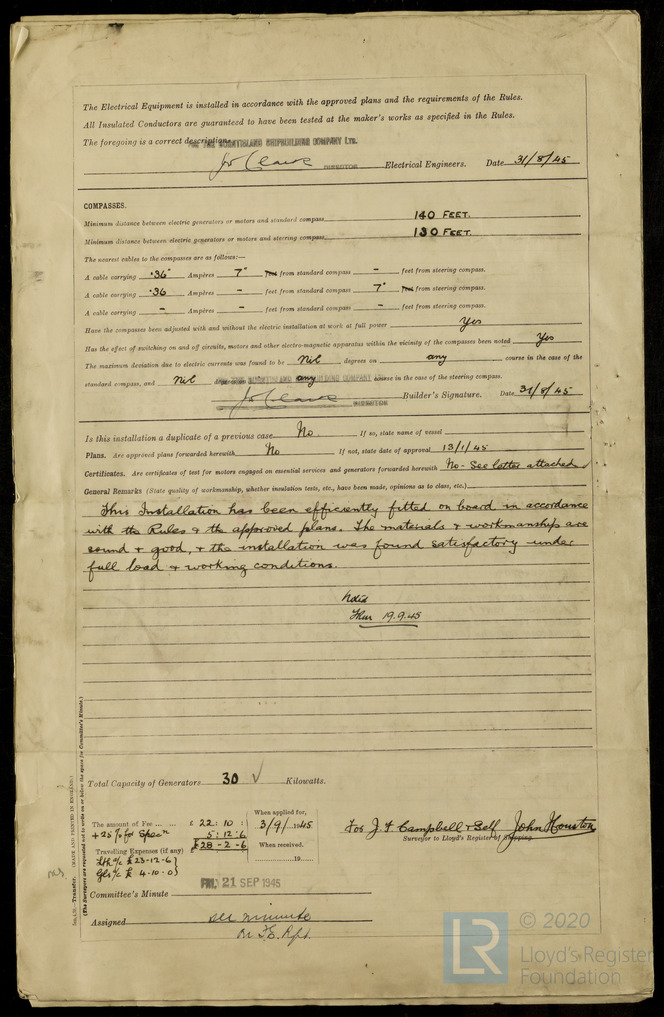 The Electrical Equipment is installed in accordance with the approved plans and the requirements of the Rules.
All Insulated Conductors are guaranteed to have been tested at the maker's works as specified in the Rules.
The foregoing is a correct description.
SHIPBUILDING COMPANY LTD.
Electrical Engineers. Date 31/8/45
COMPASSES.
Minimum distance between electric generators or motors and standard compass 140 FEET.
Minimum distance between electric generators or motors and steering compass 130 FEET.
The nearest cables to the compasses are as follows:—
A cable carrying .36 Ampères 7" feet from standard compass – feet from steering compass.
A cable carrying .36 Ampères – feet from standard compass 7" feet from steering compass.
A cable carrying – Ampères – feet from standard compass – feet from steering compass.
Have the compasses been adjusted with and without the electric installation at work at full power Yes
Has the effect of switching on and off circuits, motors and other electro-magnetic apparatus within the vicinity of the compasses been noted Yes
The maximum deviation due to electric currents was found to be Nil degrees on any course in the case of the
standard compass, and Nil degrees on any course in the case of the steering compass.
Builder's Signature. Date 31/8/45
Is this installation a duplicate of a previous case No. If so, state name of vessel
Plans. Are approved plans forwarded herewith No If not, state date of approval 13/1/45
Certificates. Are certificates of test for motors engaged on essential services and generators forwarded herewith No - See letter attached
General Remarks (State quality of workmanship, whether insulation tests, etc., have been made, opinions as to class, etc.)
This Installation has been efficiently fitted on board in accordance
with the Rules & the approved plans. The materials & workmanship are
sound & good, & the installation was found satisfactory under
full load & working conditions.
Noted
19.9.45
Total Capacity of Generators 30 ✓ Kilowatts.
The amount of Fee ... ... £ 22 : 10 :
+ 25% for Specn 5 : 12 : 6
£28 - 2 - 6
Travelling Expenses (if any) £
Lth a/c £ 23-12-6
Gls a/c £ 4-10-0
When applied for,
3/9/1945
When received.
19
For J. F. Campbell & Self John Houston
Surveyor to Lloyd's Register of Shipping.
FRI. 21 SEP 1945
Committee's Minute
Assigned See minute
on F.E. Rpt.
Transfer. (MADE AND PRINTED IN ENGLAND.)
(The Surveyors are requested not to write on or below the space for Committee's Minute.)
LR
© 2020
Lloyd's Register
Foundation